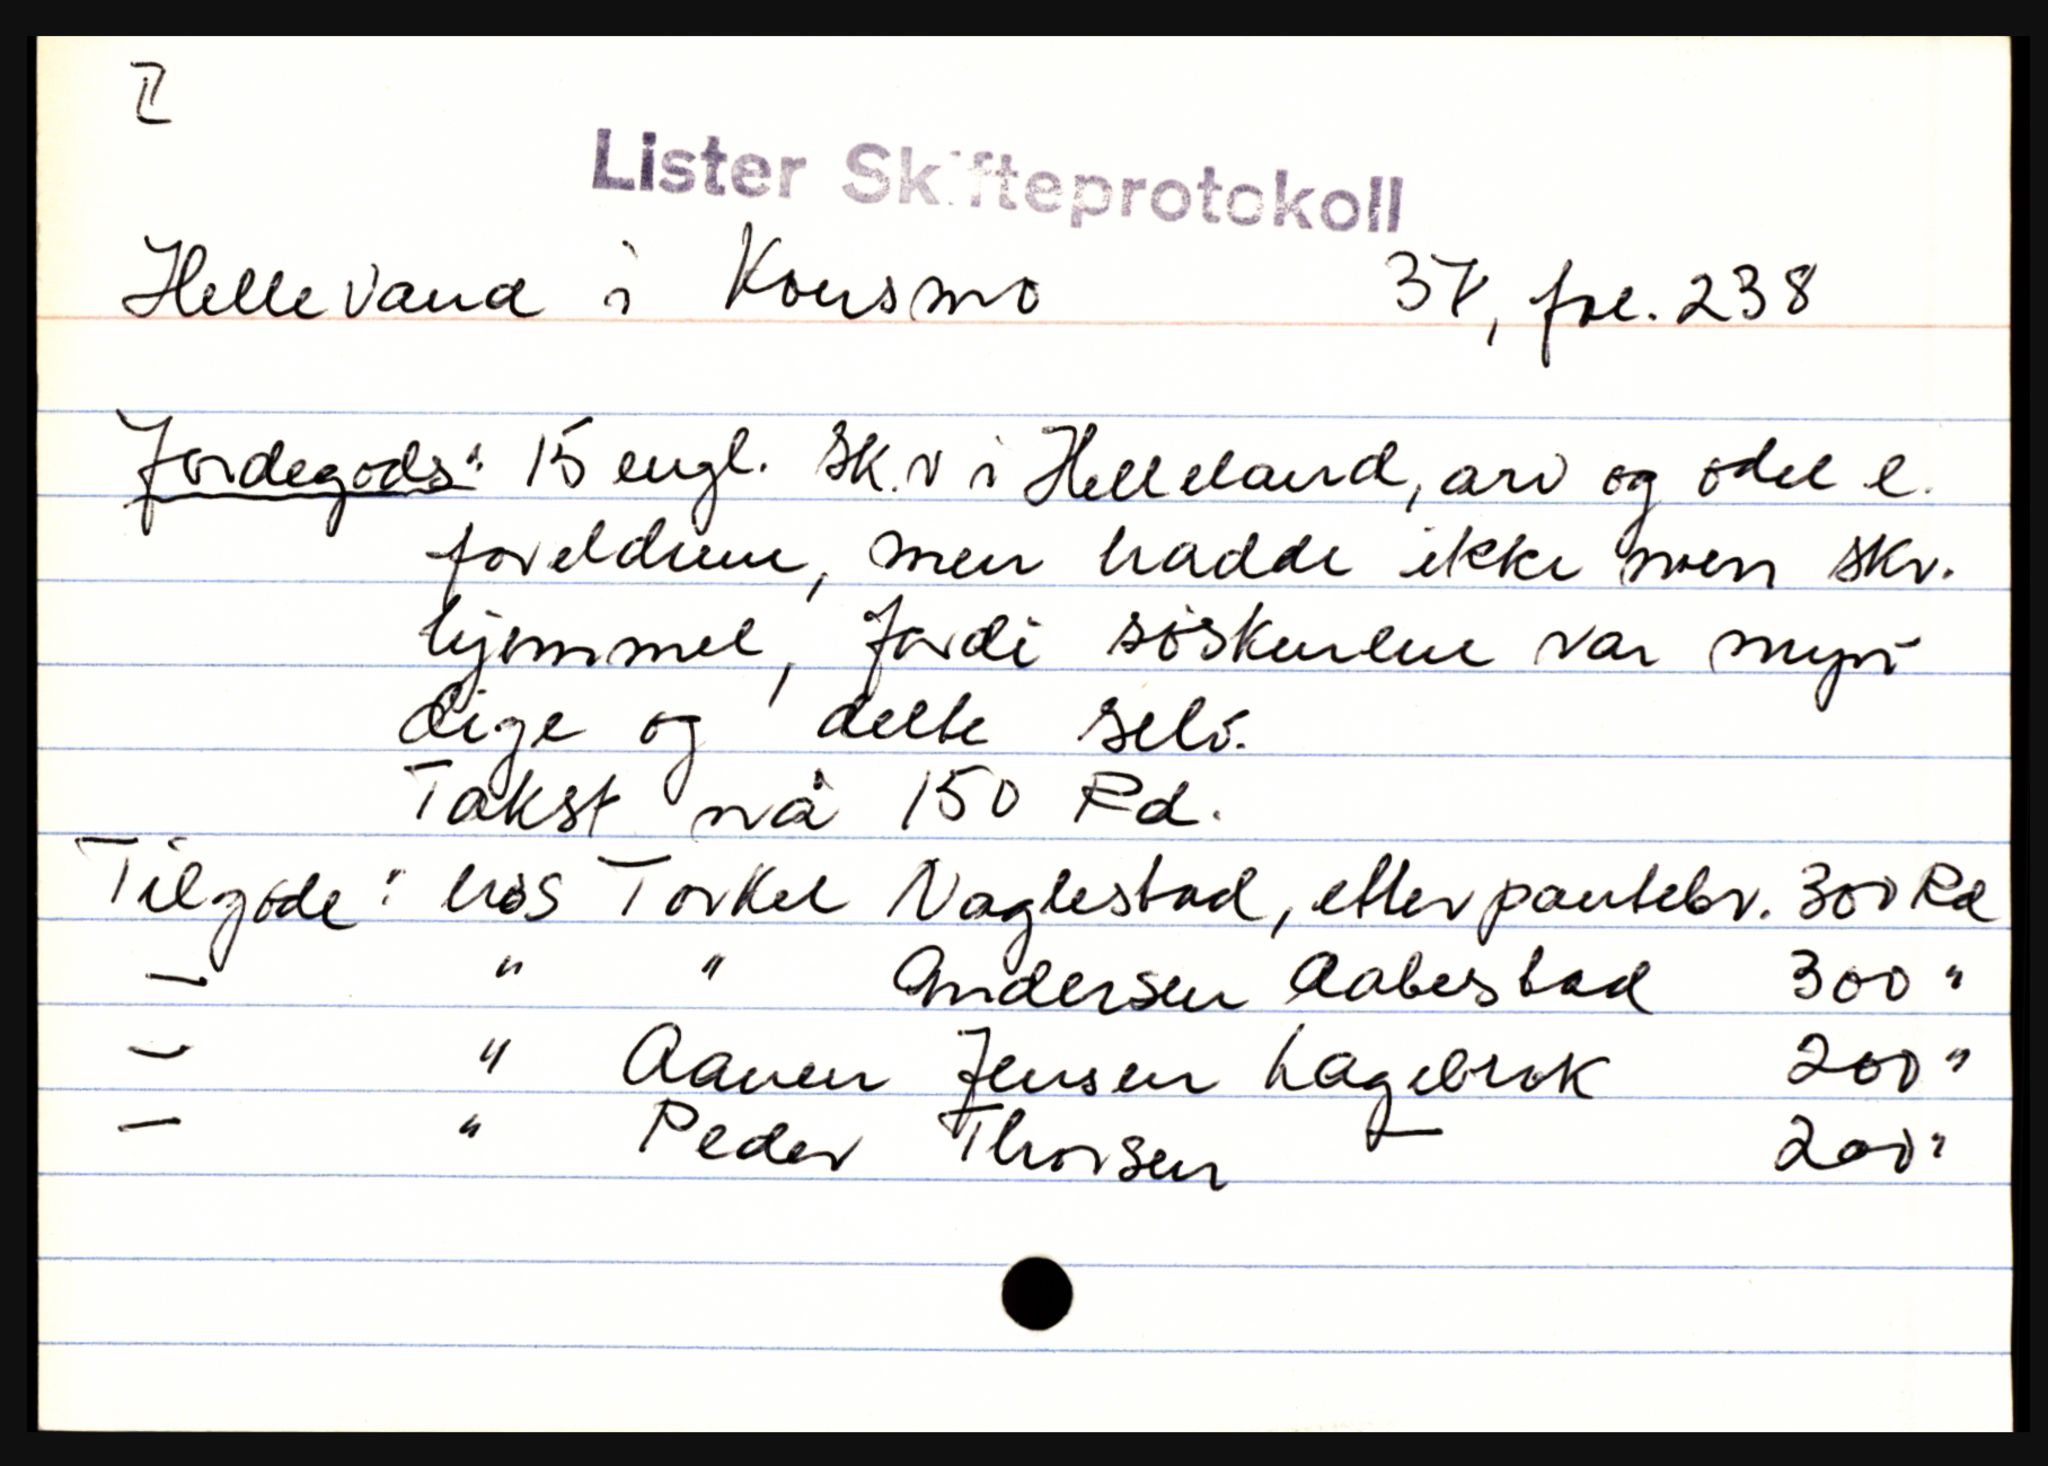 II
Lister Skifteprotokoll
Helleland i Konsmo 37, fol. 238
Jordegods: 15 engl. sk. v i Helleland, arv og odel e.
foreldrene, men hadde ikke noen skr.
hjemmel, fordi søsknene var myn-
dige og delte selv.
Takst nå 150 Rd.
Tilgode: hos Torkel Naglestad, etter pantebr. 300 Rd
— " " Andersen Aabestad 300 "
— " Aanen Jensen Lagebrok 200 "
— " Peder Thorsen — 200 "